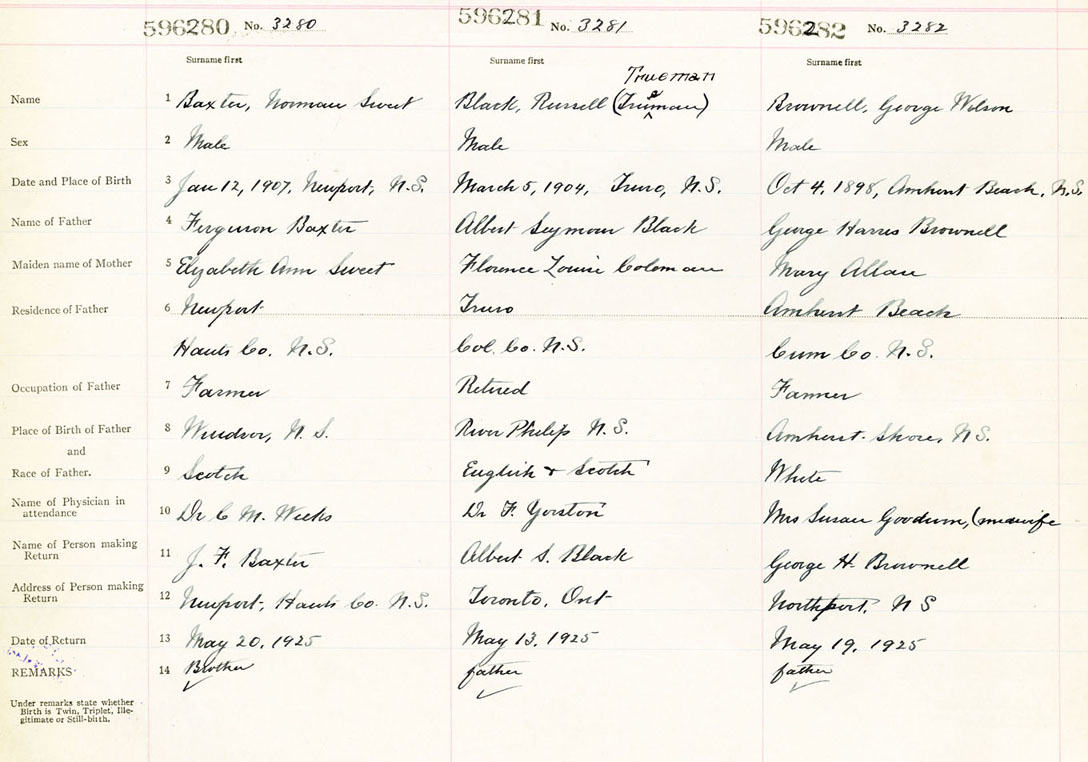 596280 No. 3280 596281 No. 3281 596282 No. 3282
Surname first Surname first Surname first
Trueman
Name 1 Baxter, Norman Sweet Black, Russell (Trueman) Brownell, George Wilson
Sex 2 Male Male Male
Date and Place of Birth 3 Jan 12, 1907, Newport, N.S. March 5, 1904, Truro, N.S. Oct 4, 1898, Amherst Beach, N.S.
Name of Father 4 Ferguson Baxter Albert Seymour Black George Harris Brownell
Maiden name of Mother 5 Elizabeth Ann Sweet Florence Louise Coleman Mary Allan
Residence of Father 6 Newport Truro Amherst Beach
Hants Co. N.S. Col. Co. N.S. Cum Co. N.S.
Occupation of Father 7 Farmer Retired Farmer
Place of Birth of Father 8 Windsor, N.S. River Philip N.S. Amherst Shores NS.
and
Race of Father. 9 Scotch English & Scotch White
Name of Physician in
attendance 10 Dr C. M. Weeks Dr F. Yorston Mrs Susan Goodwin, (midwife
Name of Person making
Return 11 J. F. Baxter Albert S. Black George H. Brownell
Address of Person making
Return 12 Newport, Hants Co. N.S. Toronto, Ont Northport, N S
Date of Return 13 May 20, 1925 May 13, 1925 May 19, 1925
REMARKS 14 Brother father father
Under remarks state whether
Birth is Twin, Triplet, Ille-
gitimate or Still-birth.